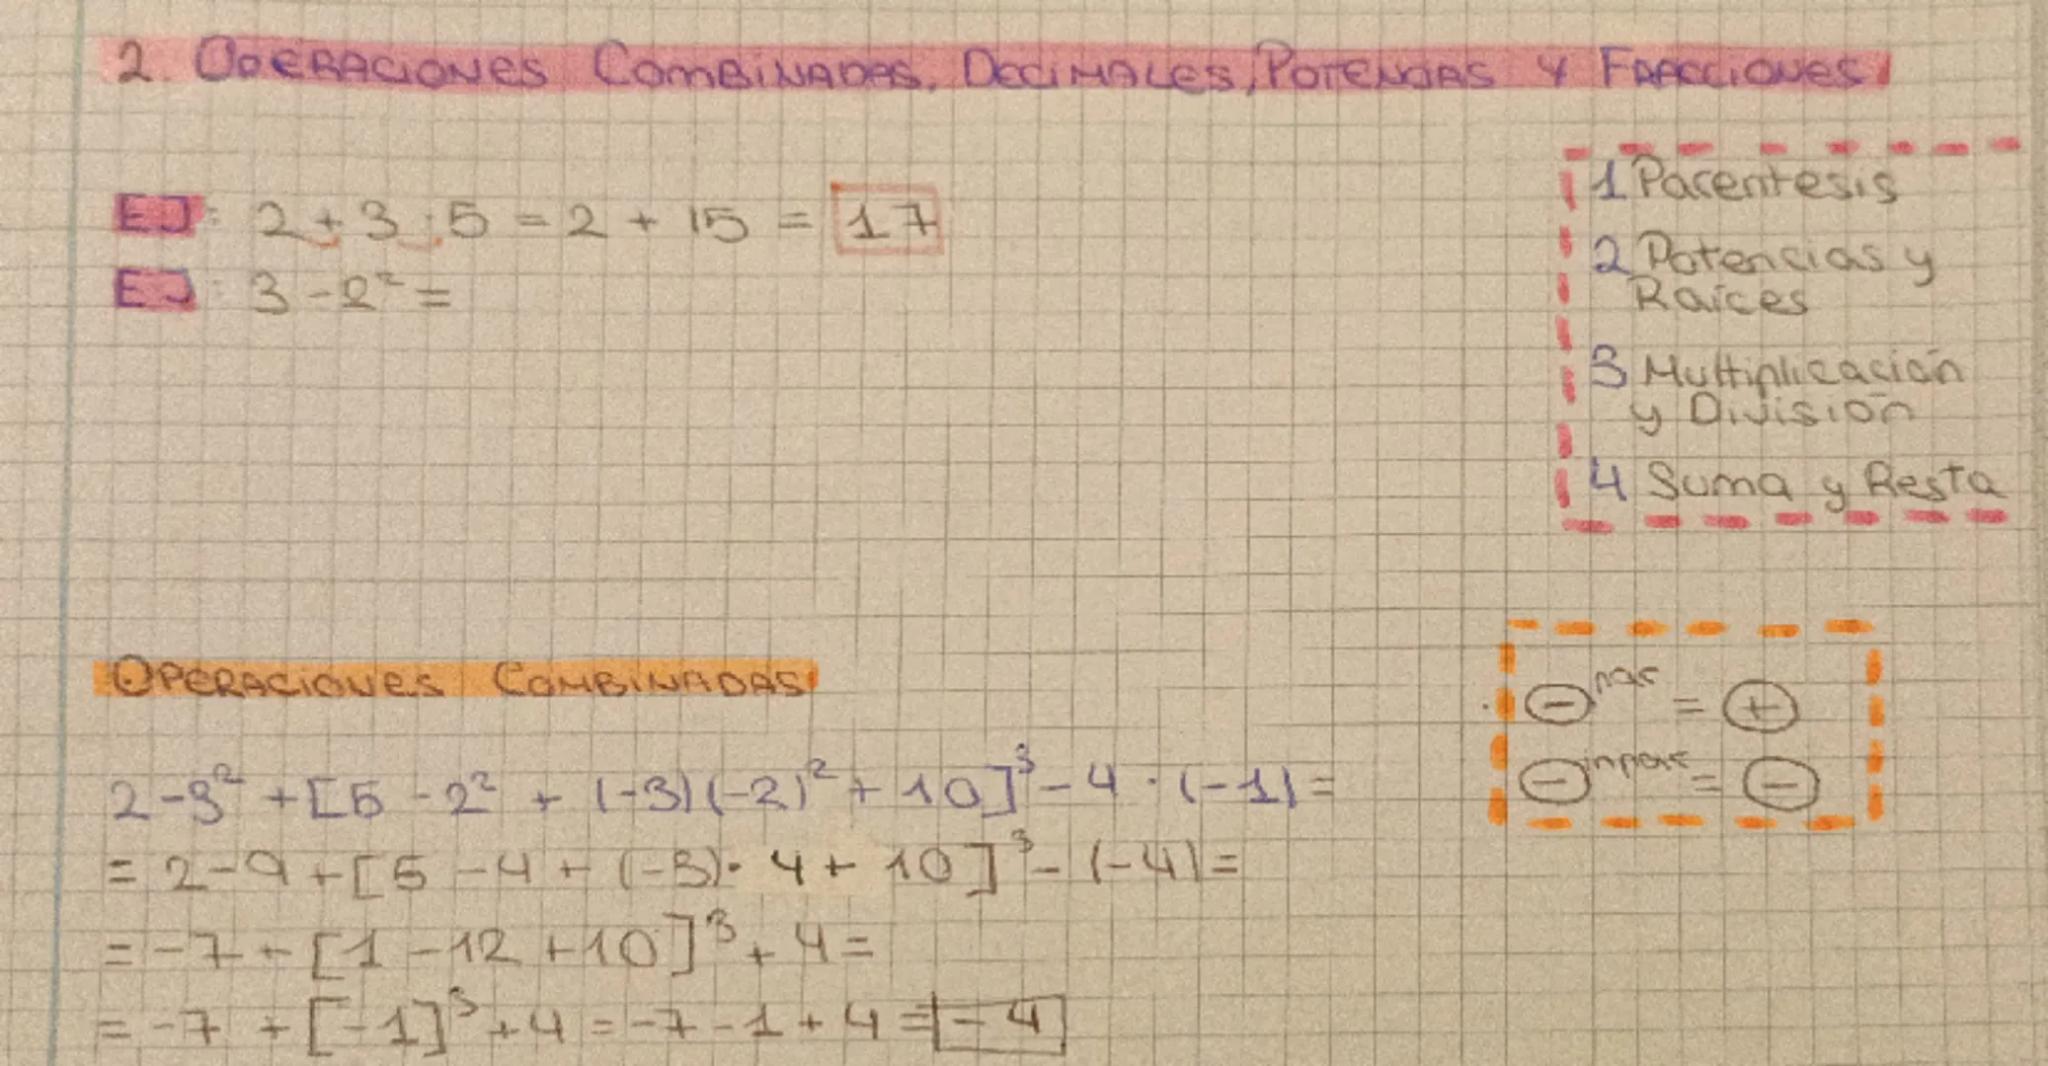 2. OPERACIONES COMBINADAS, DECIMALES, POTENCIAS Y FRACCIONES
EJ: 2 + 3 · 5 = 2 + 15 = 17
EJ: 3 - 2² =
1 Parentesis
2 Potencias y
Raíces
3 Multiplicación
y División
4 Suma y Resta
OPERACIONES COMBINADAS
⊖ᵖᵃʳ = ⊕
⊖ⁱⁿᵖᵃʳ = ⊖
2 - 3² + [5 - 2² + (-3)(-2)² + 10]³ - 4 · (-1) =
= 2 - 9 + [5 - 4 + (-3) · 4 + 10]³ - (-4) =
= -7 + [1 - 12 + 10]³ + 4 =
= -7 + [-1]³ + 4 = -7 - 1 + 4 = -4